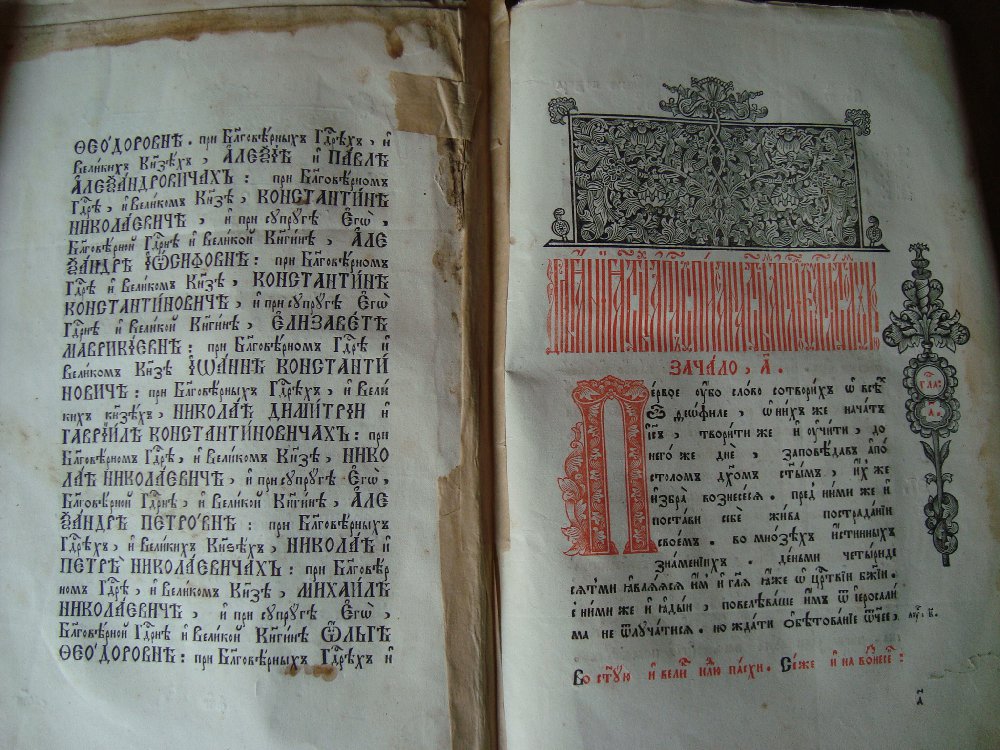 ѲЕО́ДОРОВНѢ . при Бл҃говѣ́рныхъ Гдⷭ҇рѣхъ , и҆
Вели́кихъ Кн҃зѣхъ , А҆ЛЕѮІ́Ѣ и҆ ПА́ВЛѢ
А҆ЛЕѮА́НДРОВИЧАХЪ : при Бл҃говѣ́рномъ
Гдⷭ҇рѣ , и҆ Вели́комъ Кн҃зѣ , КОНСТАНТИ́НѢ
НИКОЛА́ЕВИЧѢ , и҆ при супру́гѣ Є҆гѡ̀ ,
Бл҃говѣ́рной Гдⷭ҇рнѣ и҆ Вели́кой Кн҃ги́нѣ , А҆ЛЕ
ѮА́НДРѢ І҆Ѡ́СИФОВНѢ : при Бл҃говѣ́рномъ
Гдⷭ҇рѣ и҆ Вели́комъ Кн҃зѣ , КОНСТАНТИ́НѢ
КОНСТАНТИ́НОВИЧѢ , и҆ при супру́гѣ Є҆гѡ̀
Гдⷭ҇рнѣ и҆ Вели́кой Кн҃ги́нѣ , Е҆ЛИЗАВЕ́ТѢ
МАВРИ́КІЕВНѢ : при Бл҃говѣ́рномъ Гдⷭ҇рѣ и҆
Вели́комъ Кн҃зѣ І҆ѠА́ННѢ КОНСТАНТИ́
НОВИЧѢ : при Бл҃говѣ́рныхъ Гдⷭ҇рѣхъ , и҆ Вели́
кихъ кн҃зѣхъ , НИКОЛА́Ѣ ДИМИ́ТРІИ и҆
ГАВРІИ́ЛѢ КОНСТАНТИ́НОВИЧАХЪ : при
Бл҃говѣ́рномъ Гдⷭ҇рѣ , и҆ Вели́комъ Кн҃зѣ , НИКО
ЛА́Ѣ НИКОЛА́ЕВИЧѢ , и҆ при супру́гѣ Є҆гѡ̀ ,
Бл҃говѣ́рной Гдⷭ҇рнѣ , и҆ Вели́кой Кн҃ги́нѣ , А҆ЛЕ
ѮА́НДРѢ ПЕТРО́ВНѢ : при Бл҃говѣ́рныхъ
Гдⷭ҇рѣхъ , и҆ Вели́кихъ Кн҃зѣхъ , НИКОЛА́Ѣ и҆
ПЕТРѢ̀ НИКОЛА́ЕВИЧАХЪ : при Бл҃говѣ́р
номъ Гдⷭ҇рѣ , и҆ Вели́комъ Кн҃зѣ , МИХАИ́ЛѢ
НИКОЛА́ЕВИЧѢ , и҆ при супру́гѣ Є҆гѡ̀ ,
Бл҃говѣ́рной Гдⷭ҇рнѣ и҆ Вели́кой Кн҃ги́нѣ Ѻ҆́ЛЬГѢ
ѲЕО́ДОРОВНѢ : при Бл҃говѣ́рныхъ Гдⷭ҇рѣхъ и҆
ЗАЧА́ЛО , А҃ .
Пе́рвое ᲂу҆́бо сло́во сотвори́хъ ѡ҆ всѣ́хъ
ѽ ѳео́филе , ѡ҆ ни́хже нача́тъ
І҆и҃съ , твори́ти же и҆ ᲂу҆чи́ти , до
него́же днѐ , заповѣ́давъ а҆по́
столомъ дх҃омъ ст҃ы́мъ , и҆́хже
и҆збра̀ вознесе́сѧ . пред̾ ни́ми же и҆
поста́ви себѐ жи́ва пострада́нїи
свое́мъ . во мно́зѣхъ и҆́стинныхъ
зна́менїихъ . де́ньми четы́риде
сѧ́тми ꙗ҆влѧ́ѧсѧ и҆̀мъ и҆ гл҃ѧ ꙗ҆́же ѡ҆ црⷭ҇твїи бж҃їи .
с ни́ми же и҆ ꙗ҆ды́и , повелѣва́ше и҆̀мъ ѿ і҆еросали́
ма не ѿлуча́тисѧ . но жда́ти ѡ҆бѣтова́нїе ѻ҆́ч҃ее ,
гла:
а҃.
Во ст҃ꙋ́ю и҆ вели́ нлⷣю па́схи . Се́же и҆ на вознесе́ :
а҃